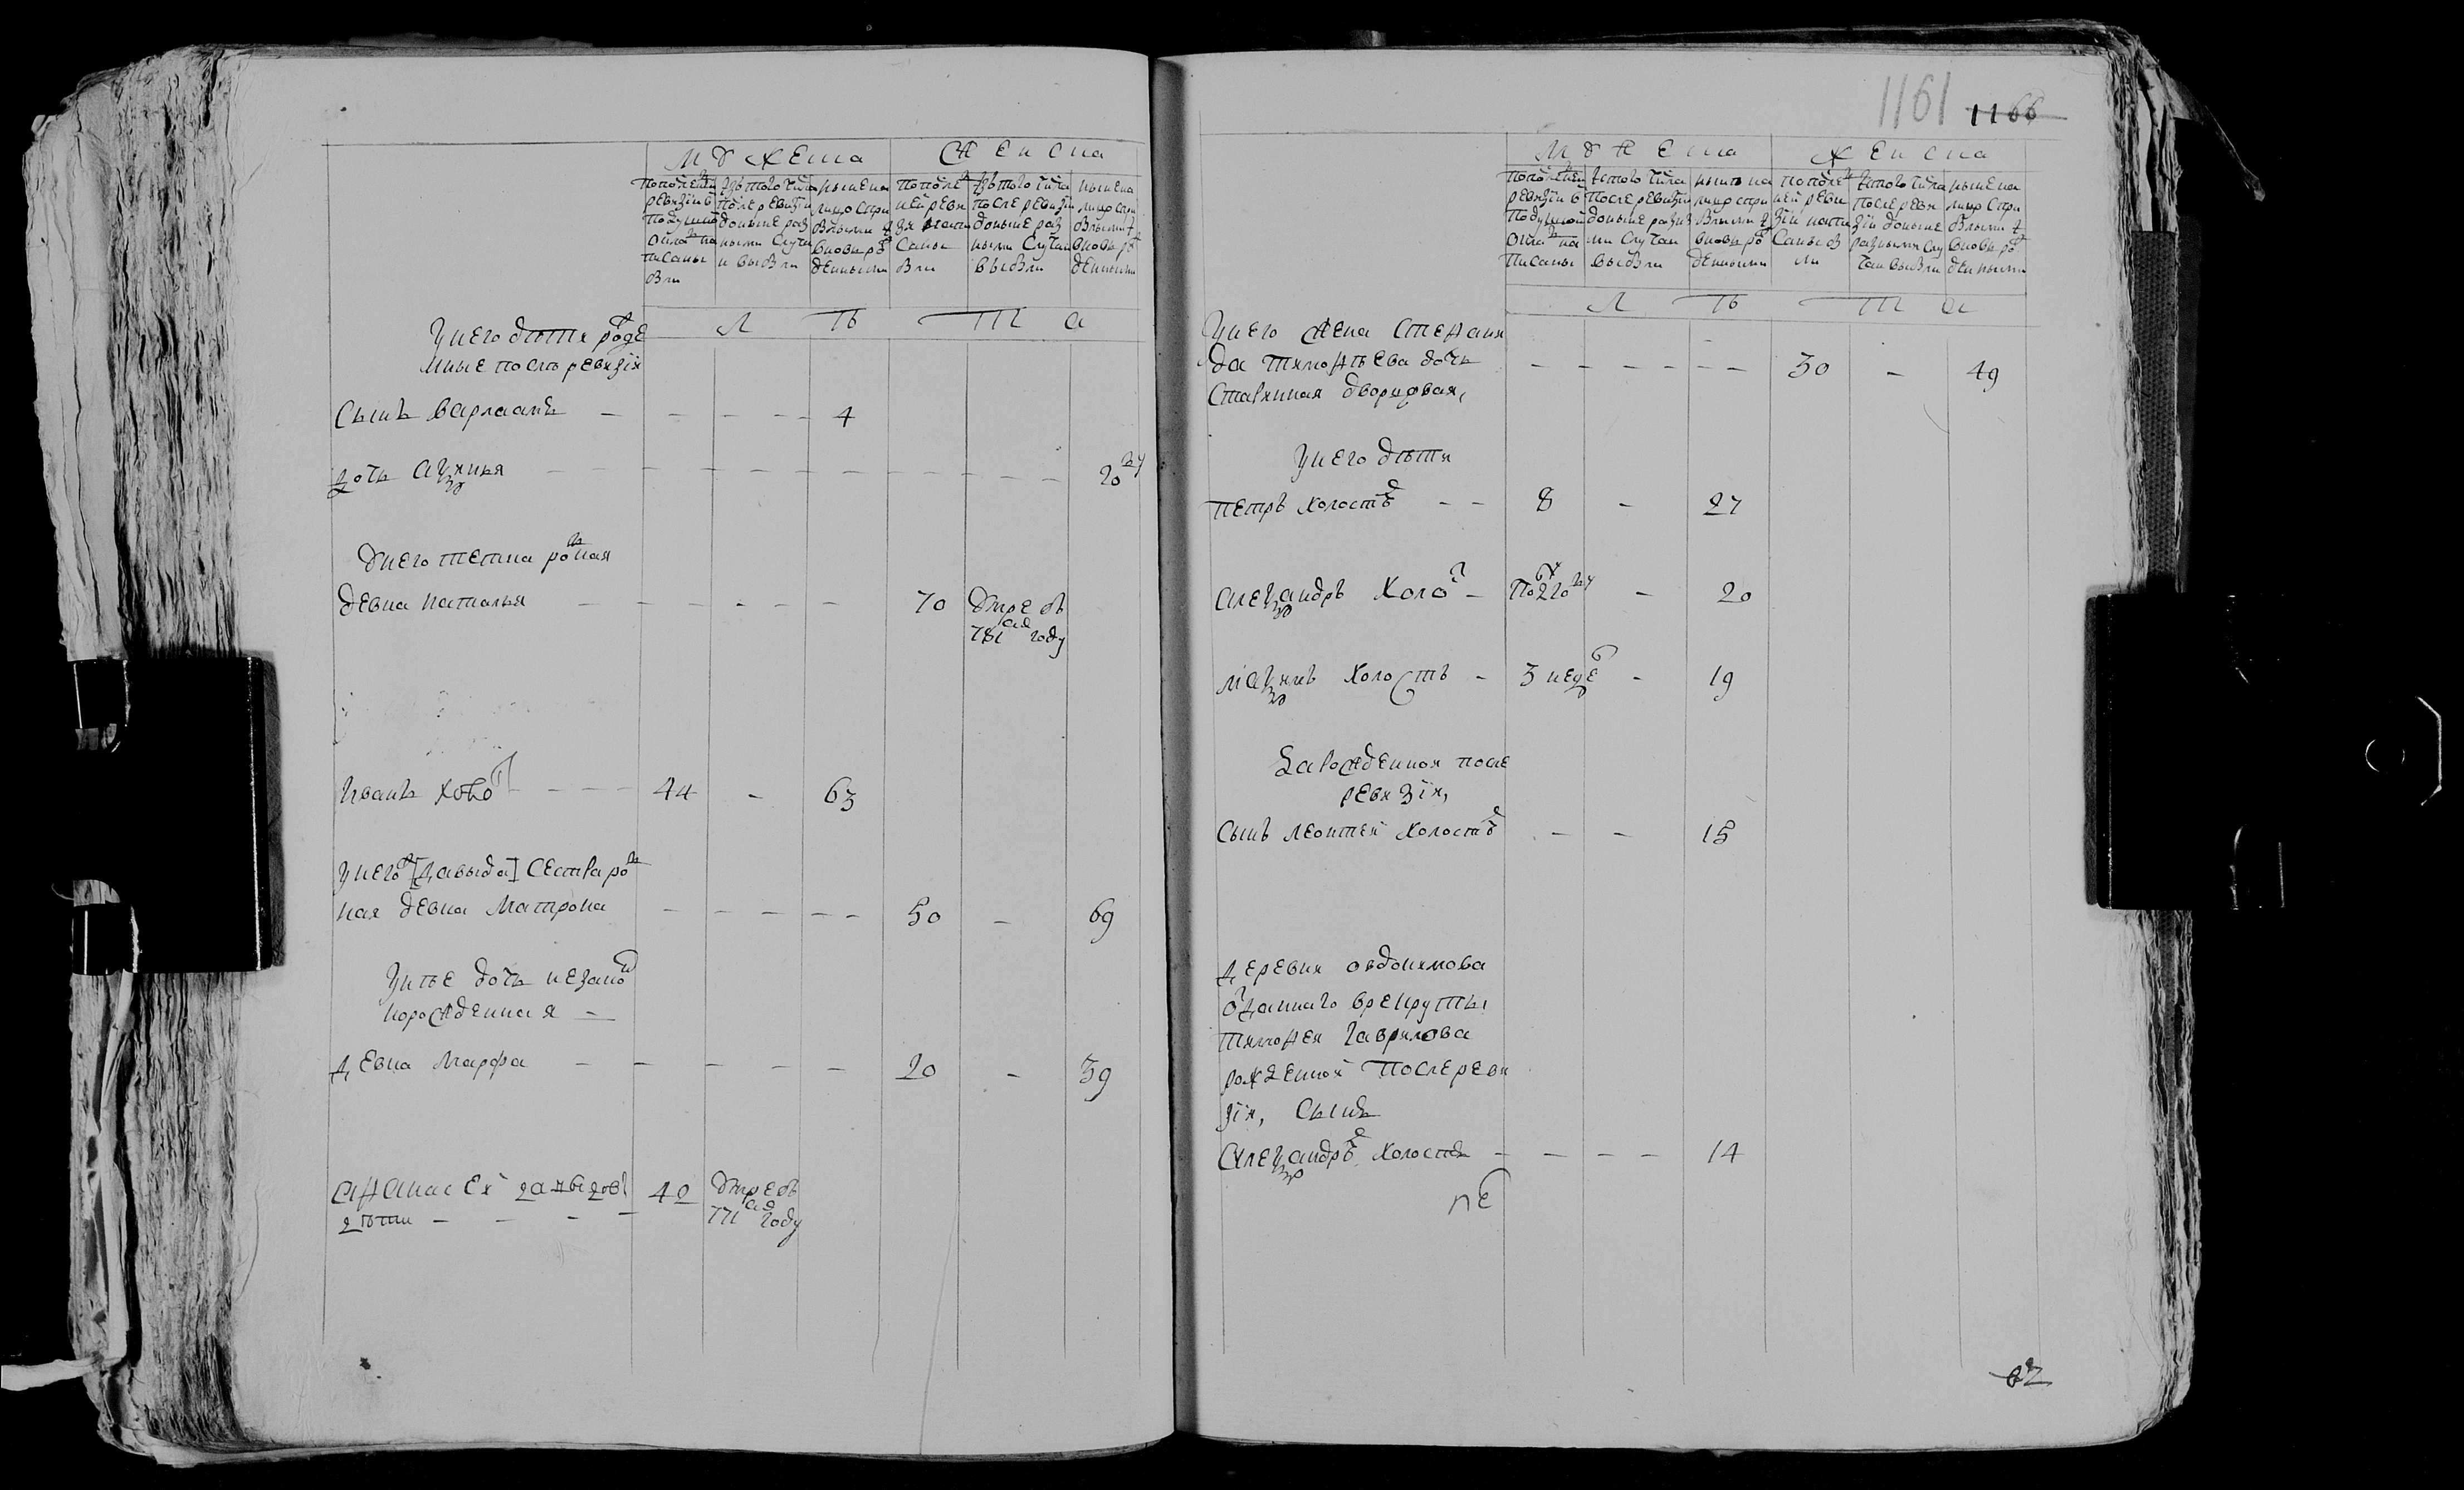 мужеска
женска
попослѣдней ревизіи в подушной окладъ написаны были
изътого числа послѣ ревизіи доныне разными случаи выбыли
ныне налицо сприбылыми и вновь рожденными
попослѣдней ревизіи написаны были
изътого числа послѣ ревизіи доныне разными случаи выбыли
ныне налицо сприбылыми и вновь рожденными
лѣта
унего дѣти рожде
нные послѣ ревизіи
сынъ варлаамъ - - - - - 4
дочь аѯинья - - - - - - - - - 20 нѣ
унего тетка родная
девка наталья - - - - - - 70 умре въ
781 году
иванъ холо - - - - 44 - 63
унего [давыда] сестра род
ная девка матрона - - - - - 50 - 69
унѣе дочь незакон
норожденная -
девка марфа - - - - - 20 - 39
аѳанасей 40 умре въ
дѣти - - - - 771 году
1161 1166
мужеска
женска
попослѣдней ревизіи в подушной окладъ написаны были
изтого числа послѣ ревизіи доныне разными случаи выбыли
ныне налицо сприбылыми и вновь рожденными
попослѣдней ревизіи написаны были
изтого числа послѣ ревизіи доныне разными случаи выбыли
ныне налицо сприбылыми и вновь рожденными
лѣта
унего жена степани
да тимоѳѣева дочь - - - - - - 30 - 49
старинная дворцовая,
унего дѣти
петръ холостъ - - 8 - 27
алеѯандръ холо - по 2 20
маѯимъ холостъ - 3 неде - 19
зарожденной после
ревизіи,
сынъ леонтей холостъ - - 15
деревни овдокимова
отданнаго врекруты
тимоѳея гаврилова
рожденной после реви
зіи, сынъ
алеѯандръ холостъ - - - - 14